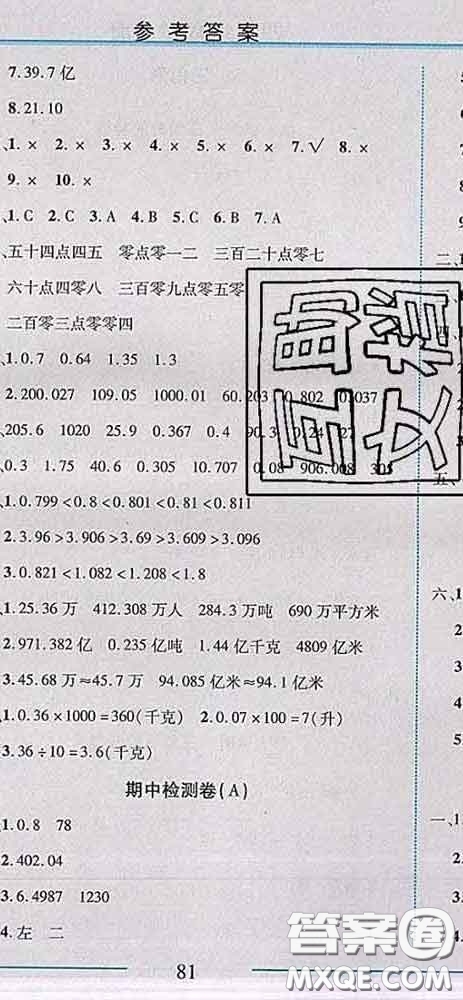 参考答案
7.39.7亿
8.21.10
、1.× 2.× 3.× 4.× 5.× 6.× 7.√ 8.×
9.× 10.×
、1.C 2.C 3.A 4.B 5.B 6.B 7.A
、五十四点四五 零点零一二 三百二十点零七
六十点四零八 三百零九点零五零
二百零三点零零四
、1.0.7 0.64 1.35 1.3
2.200.027 109.05 1000.01 60.203 0.802 0.037
、205.6 1020 25.9 0.367 0.4 90.3 0.24
0.3 1.75 40.6 0.305 10.707 0.08 906.008 305
、1.0.799<0.8<0.801<0.81<0.811
2.3.96>3.906>3.69>3.609>3.096
3.0.821<1.082<1.208<1.8
、1.25.36万 412.308万人 284.3万吨 690万平方米
2.971.382亿 0.235亿吨 1.44亿千克 4809亿米
3.45.68万≈45.7万 94.085亿米≈94.1亿米
、1.0.36×1000=360(千克) 2.0.07×100=7(升)
3.36÷10=3.6(千克)
期中检测卷(A)
、1.0.8 78
2.402.04
3.6.4987 1230
4.左 二
81
5
8
7
8
9
二、
三、
四、
五、
六、1
2
3
4
5
一、1
2
3
4
互助文档
答案圈
MXQE.COM